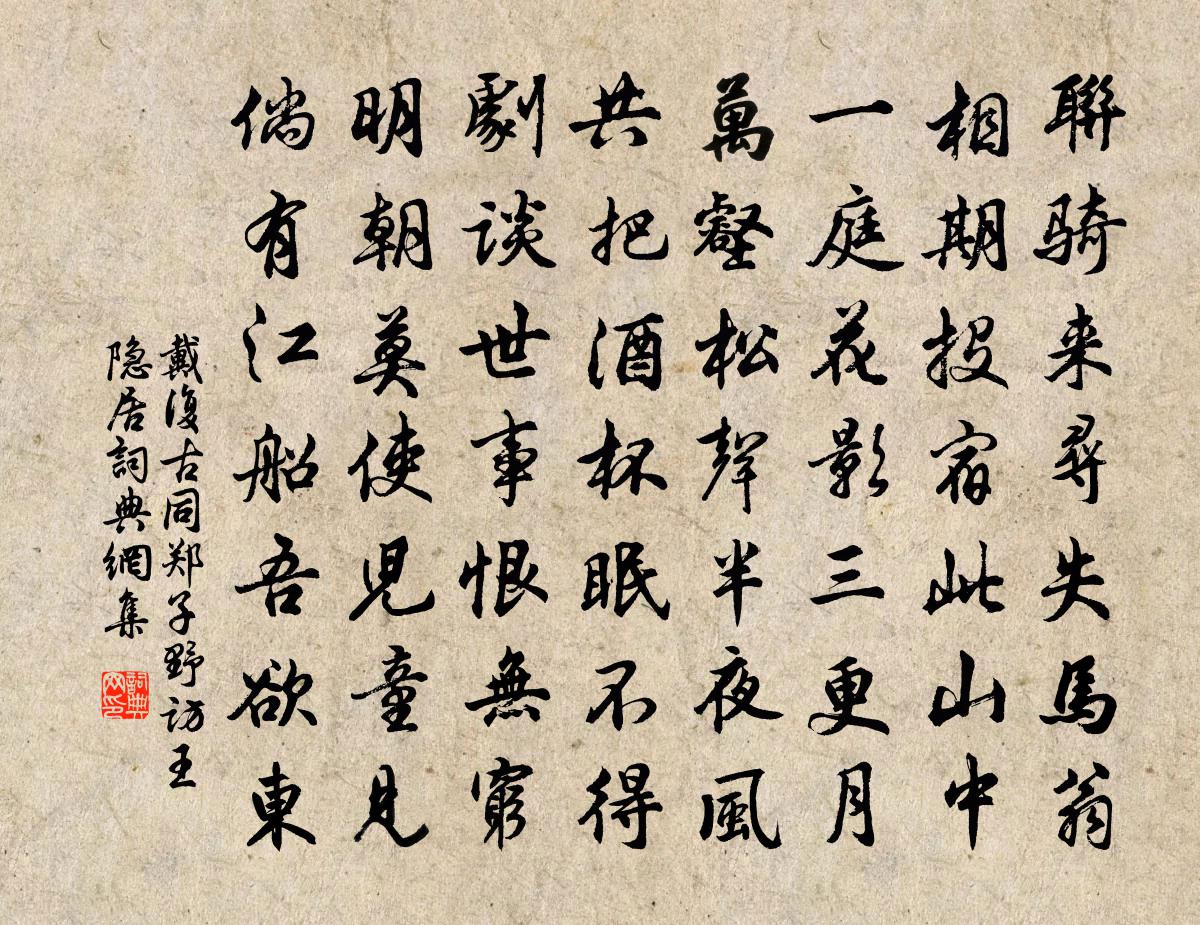 聯騎来尋失馬翁
相期投宿此山中
一庭花影三更月
萬壑松聲半夜風
共把酒杯眠不得
劇談世事恨無窮
明朝莫使児童見
倘有江船吾欲東
戴復古同郑子野访王
隐居詞典網集
詞典
网印